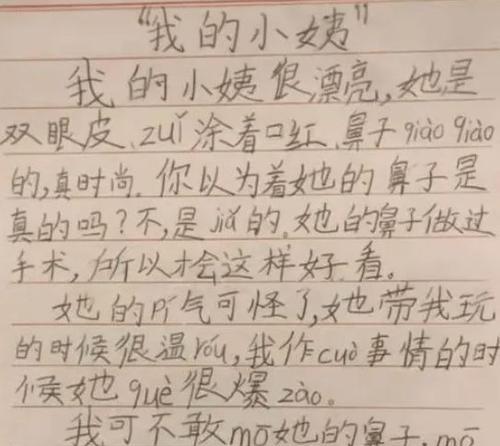 “我的小姨”
我的小姨很漂亮,她是
双眼皮、zuǐ涂着口红、鼻子qiào qiào
的,真时尚.你以为着她的鼻子是
真的吗?不,是jiǎ的.她的鼻子做过
手术,所以才会这样好看。
她的pí气可怪了,她带我玩
的时候很温róu,我作cuò事情的时
候她què很爆zào。
我可不敢mō她的鼻子.mō